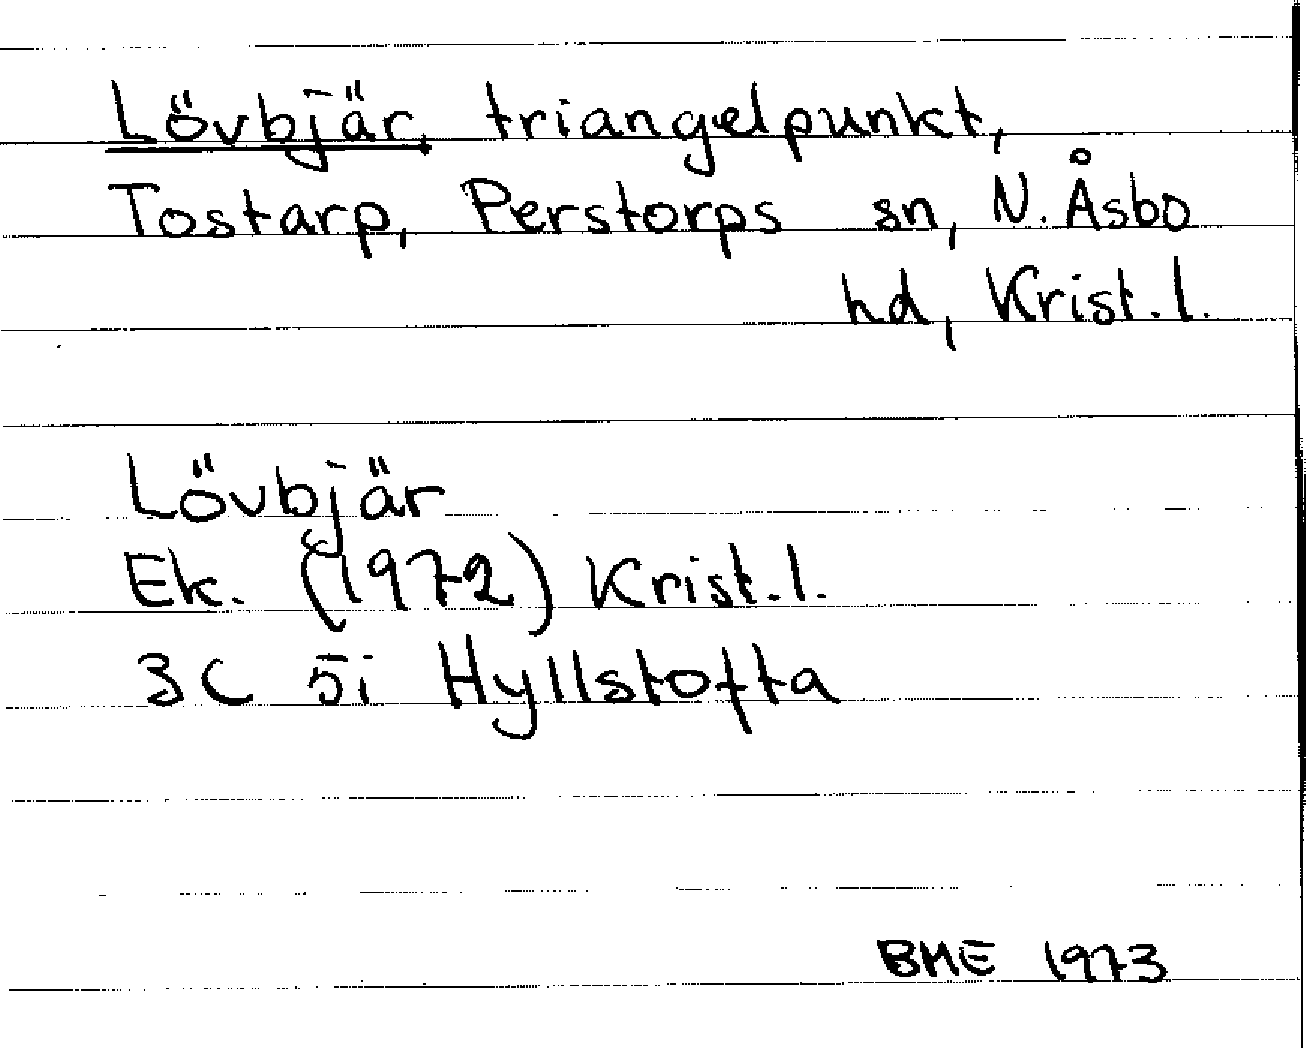 Lövbjär, triangelpunkt,
Tostarp, Perstorps sn, N. Åsbo
hd, Krist. l.
Lövbjär
Ek. (1972) Krist. l.
3C 5i Hyllstofta
BME 1973